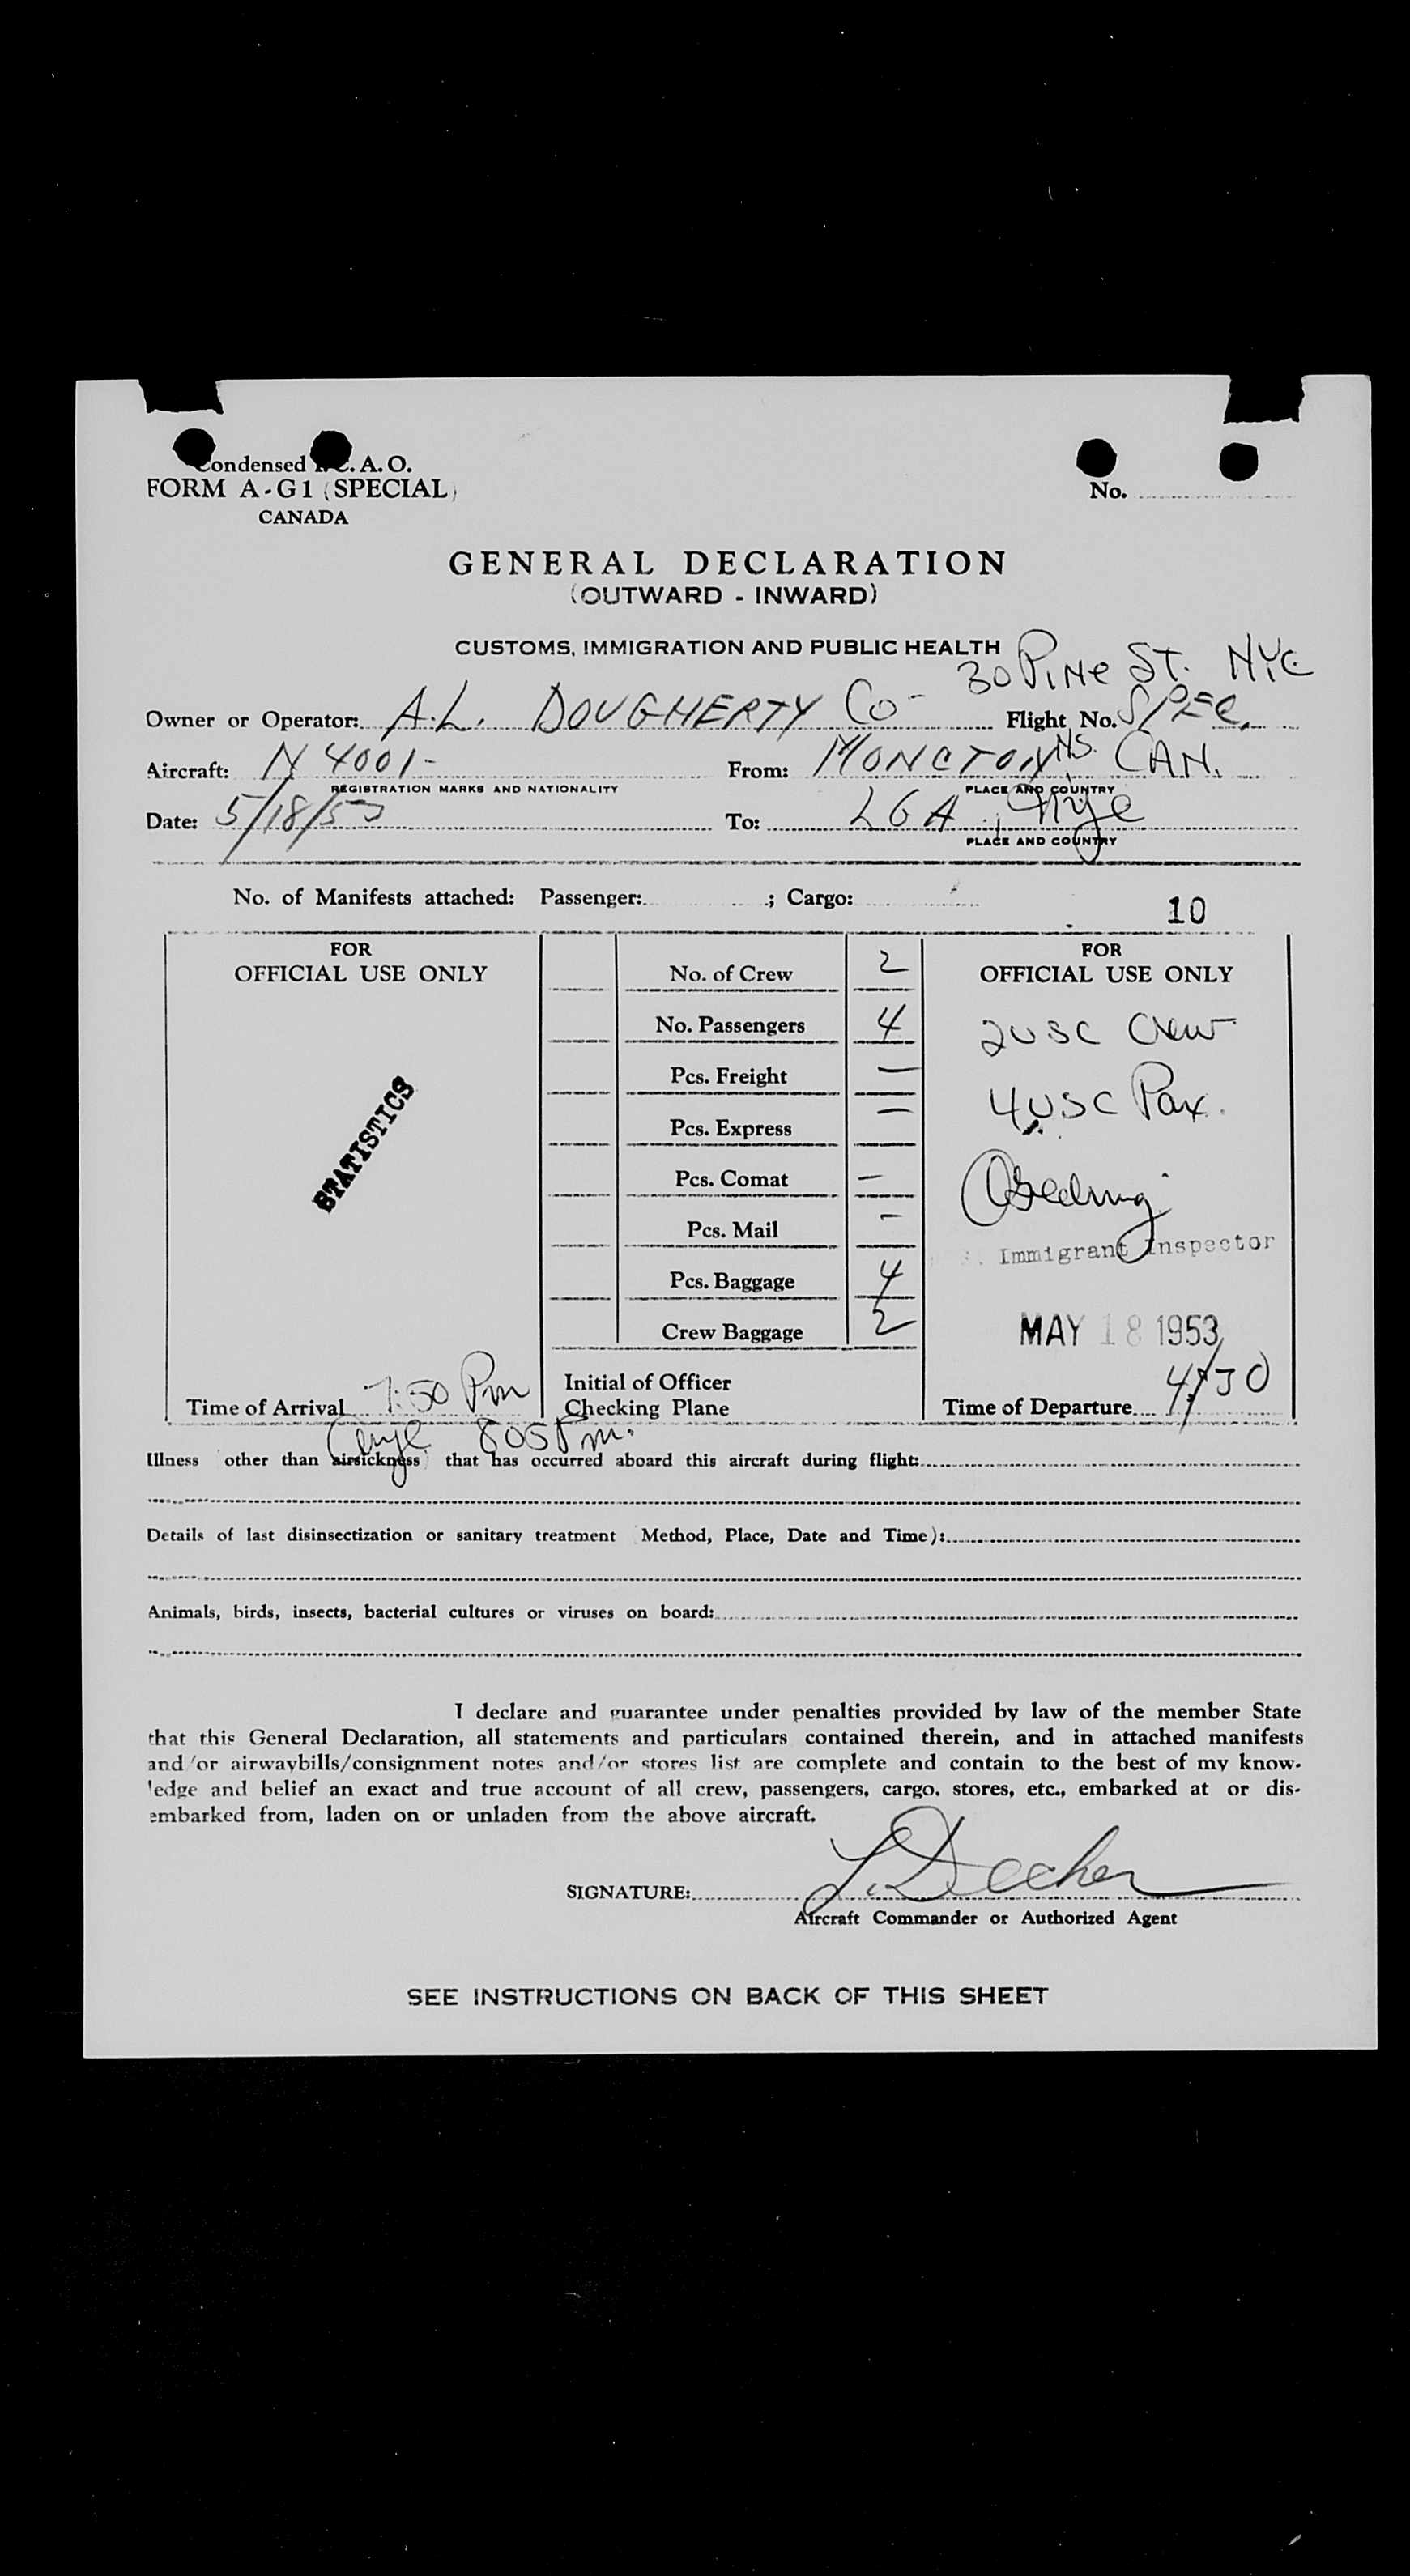 Condensed I.C.A.O.
FORM A-G1 (SPECIAL)
CANADA
No.
GENERAL DECLARATION
(OUTWARD - INWARD)
CUSTOMS, IMMIGRATION AND PUBLIC HEALTH
30 PINE ST. NYC
Owner or Operator: A.L. DOUGHERTY CO- Flight No. SPEC.
Aircraft: N 4001- From: MONCTON NS. CAN.
REGISTRATION MARKS AND NATIONALITY PLACE AND COUNTRY
Date: 5/18/53 To: LGA, NYC
PLACE AND COUNTRY
No. of Manifests attached: Passenger: ; Cargo:
10
FOR
OFFICIAL USE ONLY
STATISTICS
Time of Arrival 7:50 Pm
805 Pm.
No. of Crew 2
No. Passengers 4
Pcs. Freight —
Pcs. Express —
Pcs. Comat —
Pcs. Mail -
Pcs. Baggage 4
Crew Baggage 2
Initial of Officer
Checking Plane
FOR
OFFICIAL USE ONLY
2 USC Crew
4 USC Pax.
Immigrant Inspector
MAY 18 1953
Time of Departure 4:30
Illness other than airsickness that has occurred aboard this aircraft during flight:
Details of last disinsectization or sanitary treatment Method, Place, Date and Time):
Animals, birds, insects, bacterial cultures or viruses on board:
I declare and guarantee under penalties provided by law of the member State
that this General Declaration, all statements and particulars contained therein, and in attached manifests
and/or airwaybills/consignment notes and/or stores list are complete and contain to the best of my know-
ledge and belief an exact and true account of all crew, passengers, cargo, stores, etc., embarked at or dis-
embarked from, laden on or unladen from the above aircraft.
SIGNATURE: L. Decker
Aircraft Commander or Authorized Agent
SEE INSTRUCTIONS ON BACK OF THIS SHEET